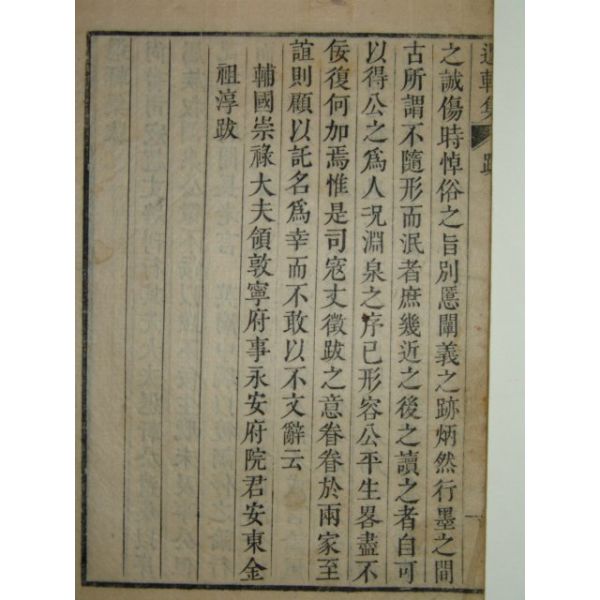 軒集 跋
之誠傷時悼俗之旨別慝闡義之跡炳然行墨之間
古所謂不隨形而泯者庶幾近之後之讀之者自可
以得公之爲人况淵泉之序已形容公平生畧盡不
佞復何加焉惟是司寇丈徵跋之意眷眷於兩家至
誼則顧以託名爲幸而不敢以不文辭云
輔國崇祿大夫領敦寧府事永安府院君安東金
祖淳跋